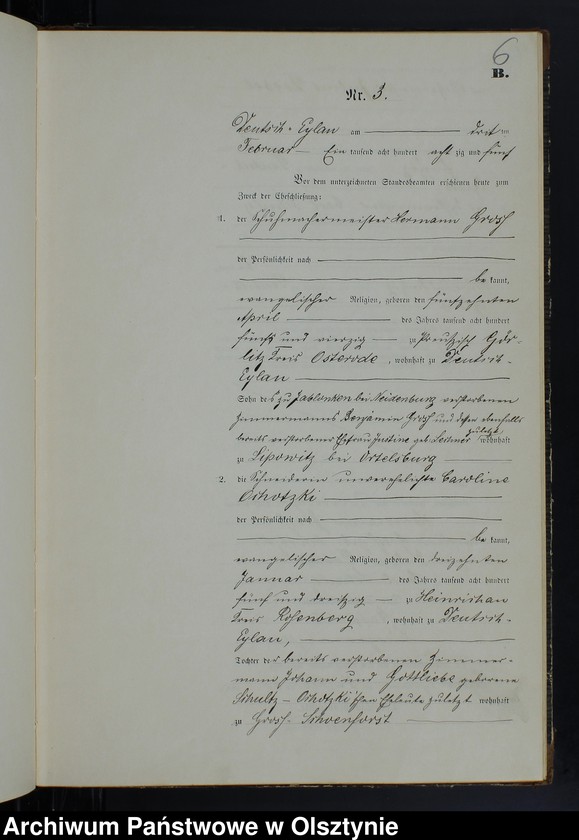 6
B.
Nr. 3.
Deutsch-Eylau am dritten
Februar Ein tausend acht hundert acht zig und fünf
Vor dem unterzeichneten Standesbeamten erschienen heute zum
Zweck der Eheschließung:
1. der Schuhmachermeister Hermann Grosz
der Persönlichkeit nach
be kannt,
evangelischer Religion, geboren den fünfzehnten
April des Jahres tausend acht hundert
fünf und vierzig zu Preußisch Gör-
litz Kreis Osterode, wohnhaft zu Deutsch-
Eylau
Sohn des zu Jablonken bei Neidenburg verstorbenen
Zimmermannes Benjamin Grosz und dessen ebenfalls
bereits verstorbener Ehefrau Justine geb. zuletzt wohnhaft
zu Lipowitz bei Ortelsburg
2. die Schneiderin unverehelichte Caroline
Ochotzki
der Persönlichkeit nach
be kannt,
evangelischer Religion, geboren den dreizehnten
Januar des Jahres tausend acht hundert
fünf und dreißig zu Heinrichau
Kreis Rosenberg, wohnhaft zu Deutsch-
Eylau,
Tochter der bereits verstorbenen Zimmer-
mann Johann und Gottliebe geborene
Schultz-Ochotzki'schen Eheleute zuletzt wohnhaft
zu Gross-Schoenforst
Archiwum Państwowe w Olsztynie